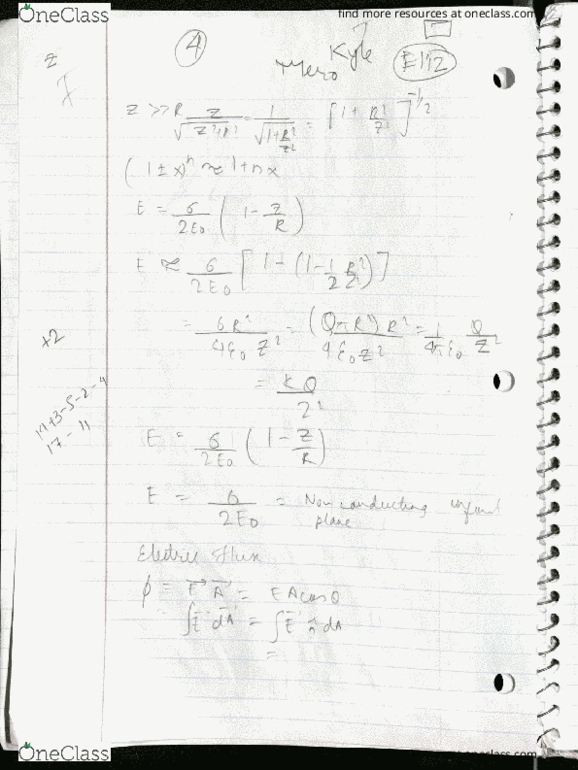 OneClass
find more resources at oneclass.com
z
4
Kyle
E112
z >> R z/√(z²+R²) = 1/√(1+R²/z²) = [1 + R²/z²]^(-1/2)
(1 ± x)ⁿ ≈ 1 + nx
E = σ/2ε₀ (1 - z/R)
E ≈ σ/2ε₀ [1 - (1 - 1/2 R²/z²)]
+2
= σR²/4ε₀z² = (Q πR²) R²/4ε₀z² = 1/4πε₀ Q/z²
= kQ/z²
17 - 11
E = σ/2ε₀ (1 - z/R)
E = σ/2ε₀ = Non conducting
plane
Electric Flux
ϕ = E⃗ A⃗ = EA cos θ
∫E⃗ dA⃗ = ∫E⃗ n̂ dA
=
OneClass
oneclass.com